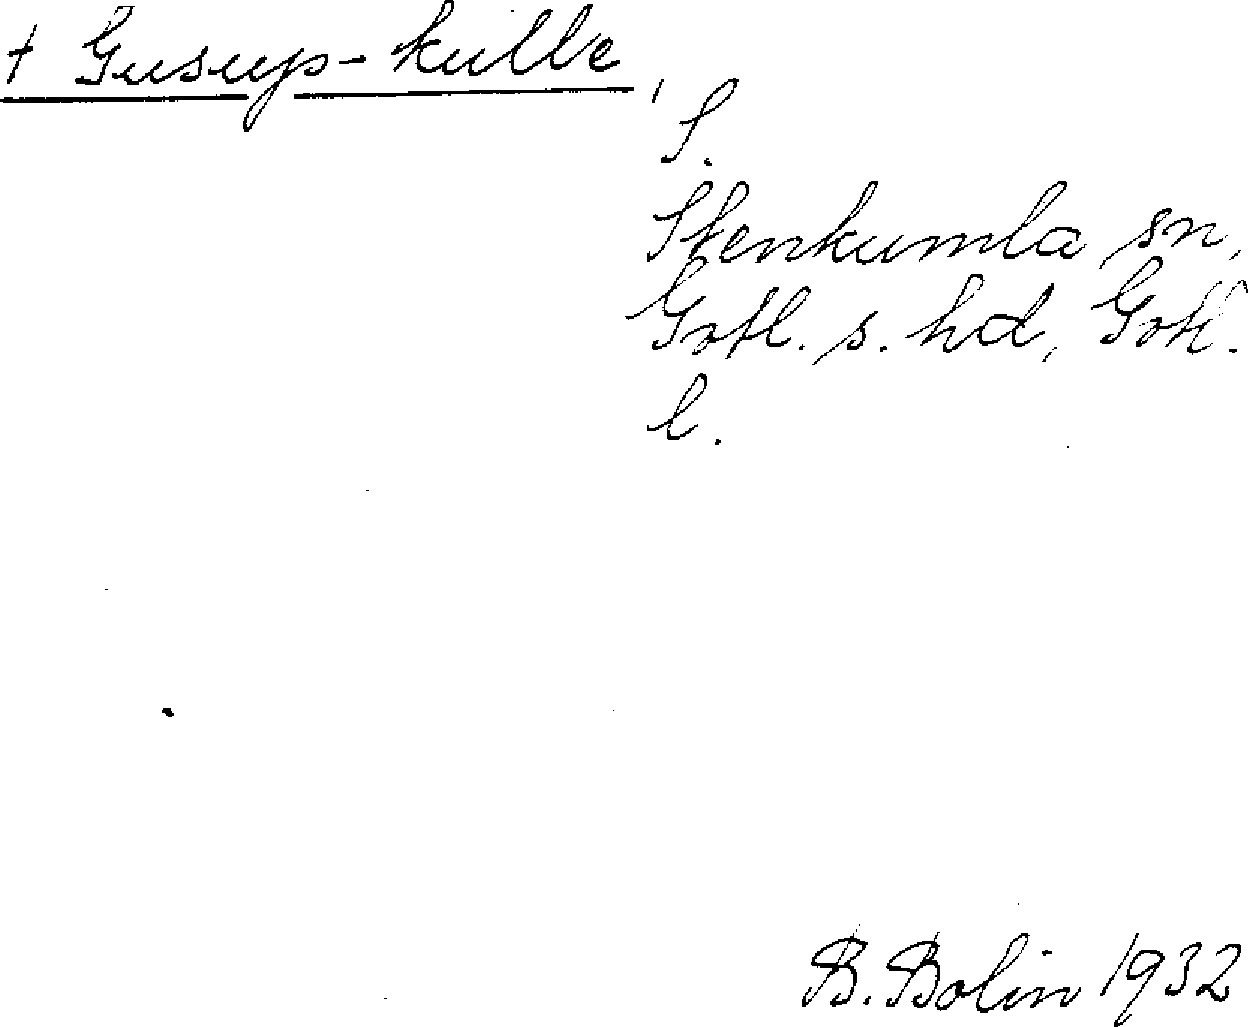 † Gusups-kulle,
S.
Stenkumla sn,
Gotl. s. hd, Gotl.
l.
B. Bolin 1932